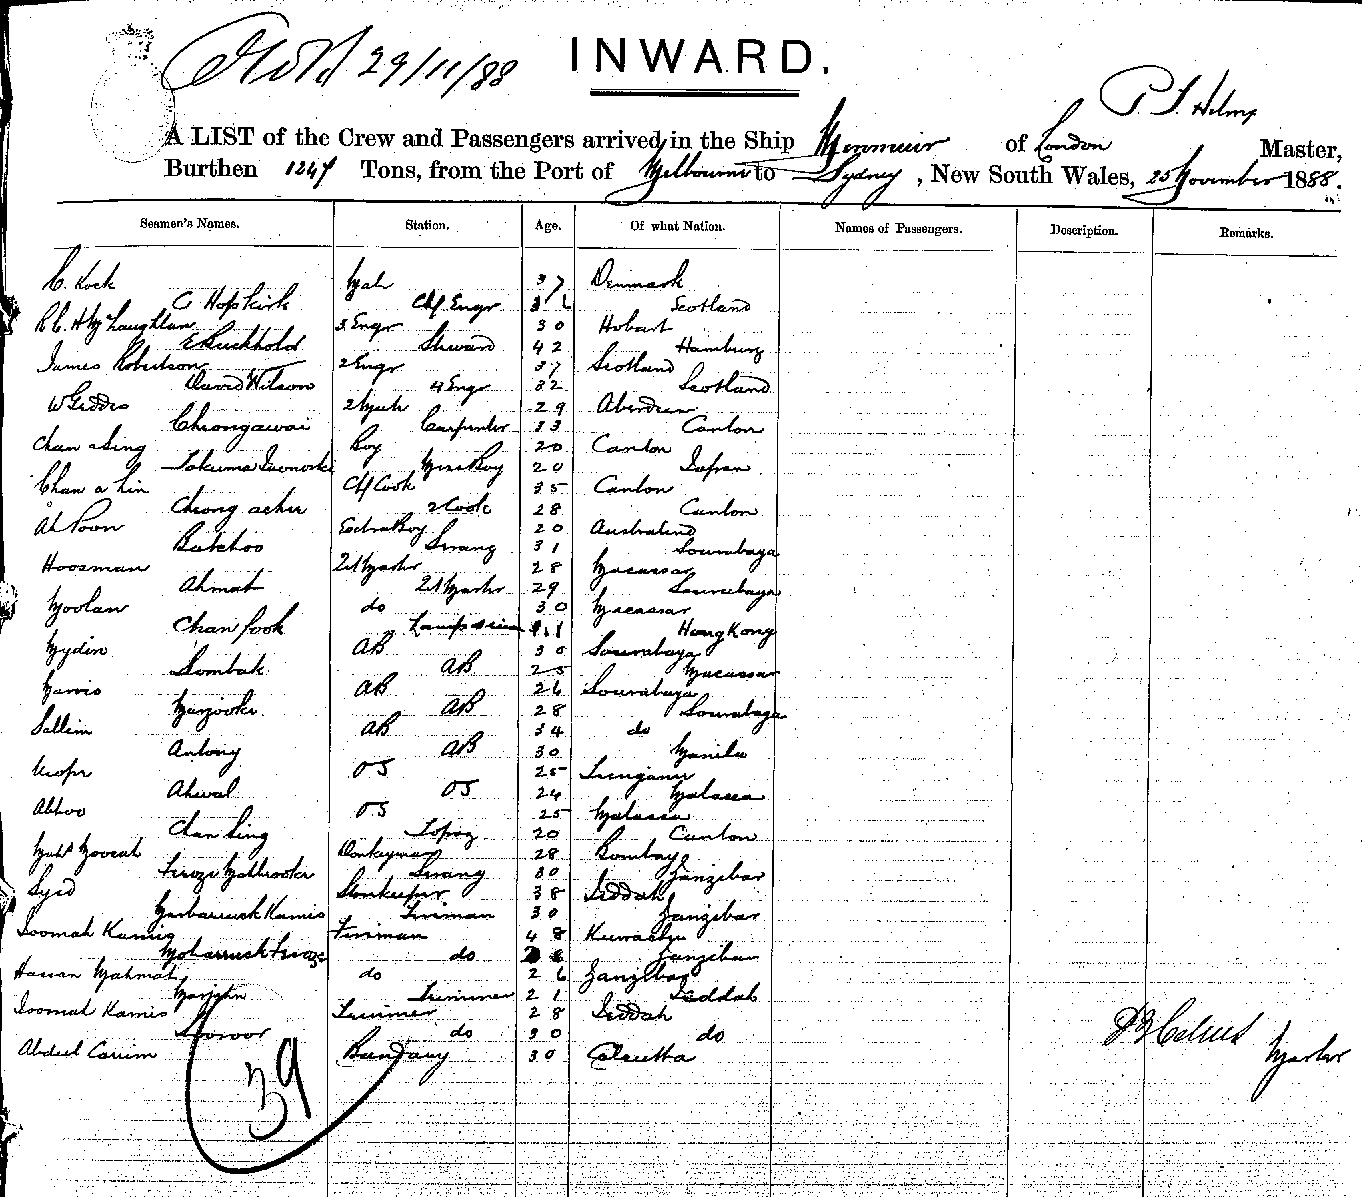 29/11/88
INWARD.
P. T. Helms
A LIST of the Crew and Passengers arrived in the Ship Menmuir of London Master,
Burthen 1247 Tons, from the Port of Melbourne to Sydney, New South Wales, 25 November 1888.
Seamen's Names. Station. Age. Of what Nation. Names of Passengers. Description. Remarks.
C. Kock Mate 37 Denmark
G Hopkirk Chf Engr Scotland
3 Engr 30 Hobart
E Buckhold Steward 42 Hamburg
James Robertson 2 Engr 37 Scotland
David Wilson 4 Engr 32 Scotland
W Geddes 2 Mate 29 Aberdeen
Cheongawai Carpenter 33 Canton
Chan a Sing Boy 20 Canton
Mess Boy 20 Japan
Chan a Lin Chf Cook 35 Canton
Cheong 2 Cook 28 Canton
Ah Poon Extra Boy 20
Serang 31 Sourabaya
Hoosman 28 Macassar
Ahmat 29 Sourabaya
Moolan do 30 Macassar
Chan fook Hong Kong
Mydin AB 30 Sourabaya
Sombak AB 25 Macassar
AB 26 Sourabaya
Marzooke AB 28 Sourabaya
Sallim AB 34 do
Antony AB 30 Manila
OS 25
Ahwal OS 24 Malacca
OS 25 Malacca
Chan Sing Topaz 20 Canton
Donkeyman 28 Bombay
Feroze Serang 30 Zanzibar
Syed Storekeeper 38 Jeddah
Kamis Fireman 30 Zanzibar
Joomah Kamis Fireman 48
Feroze do Zanzibar
Hassan Mahmat do 26 Zanzibar
Marjohn Trimmer 21 Jeddah
Joomah Kamis Trimmer 28 Jeddah
do 30 do
Abdul Carim Bandary 30 Calcutta
Master
39